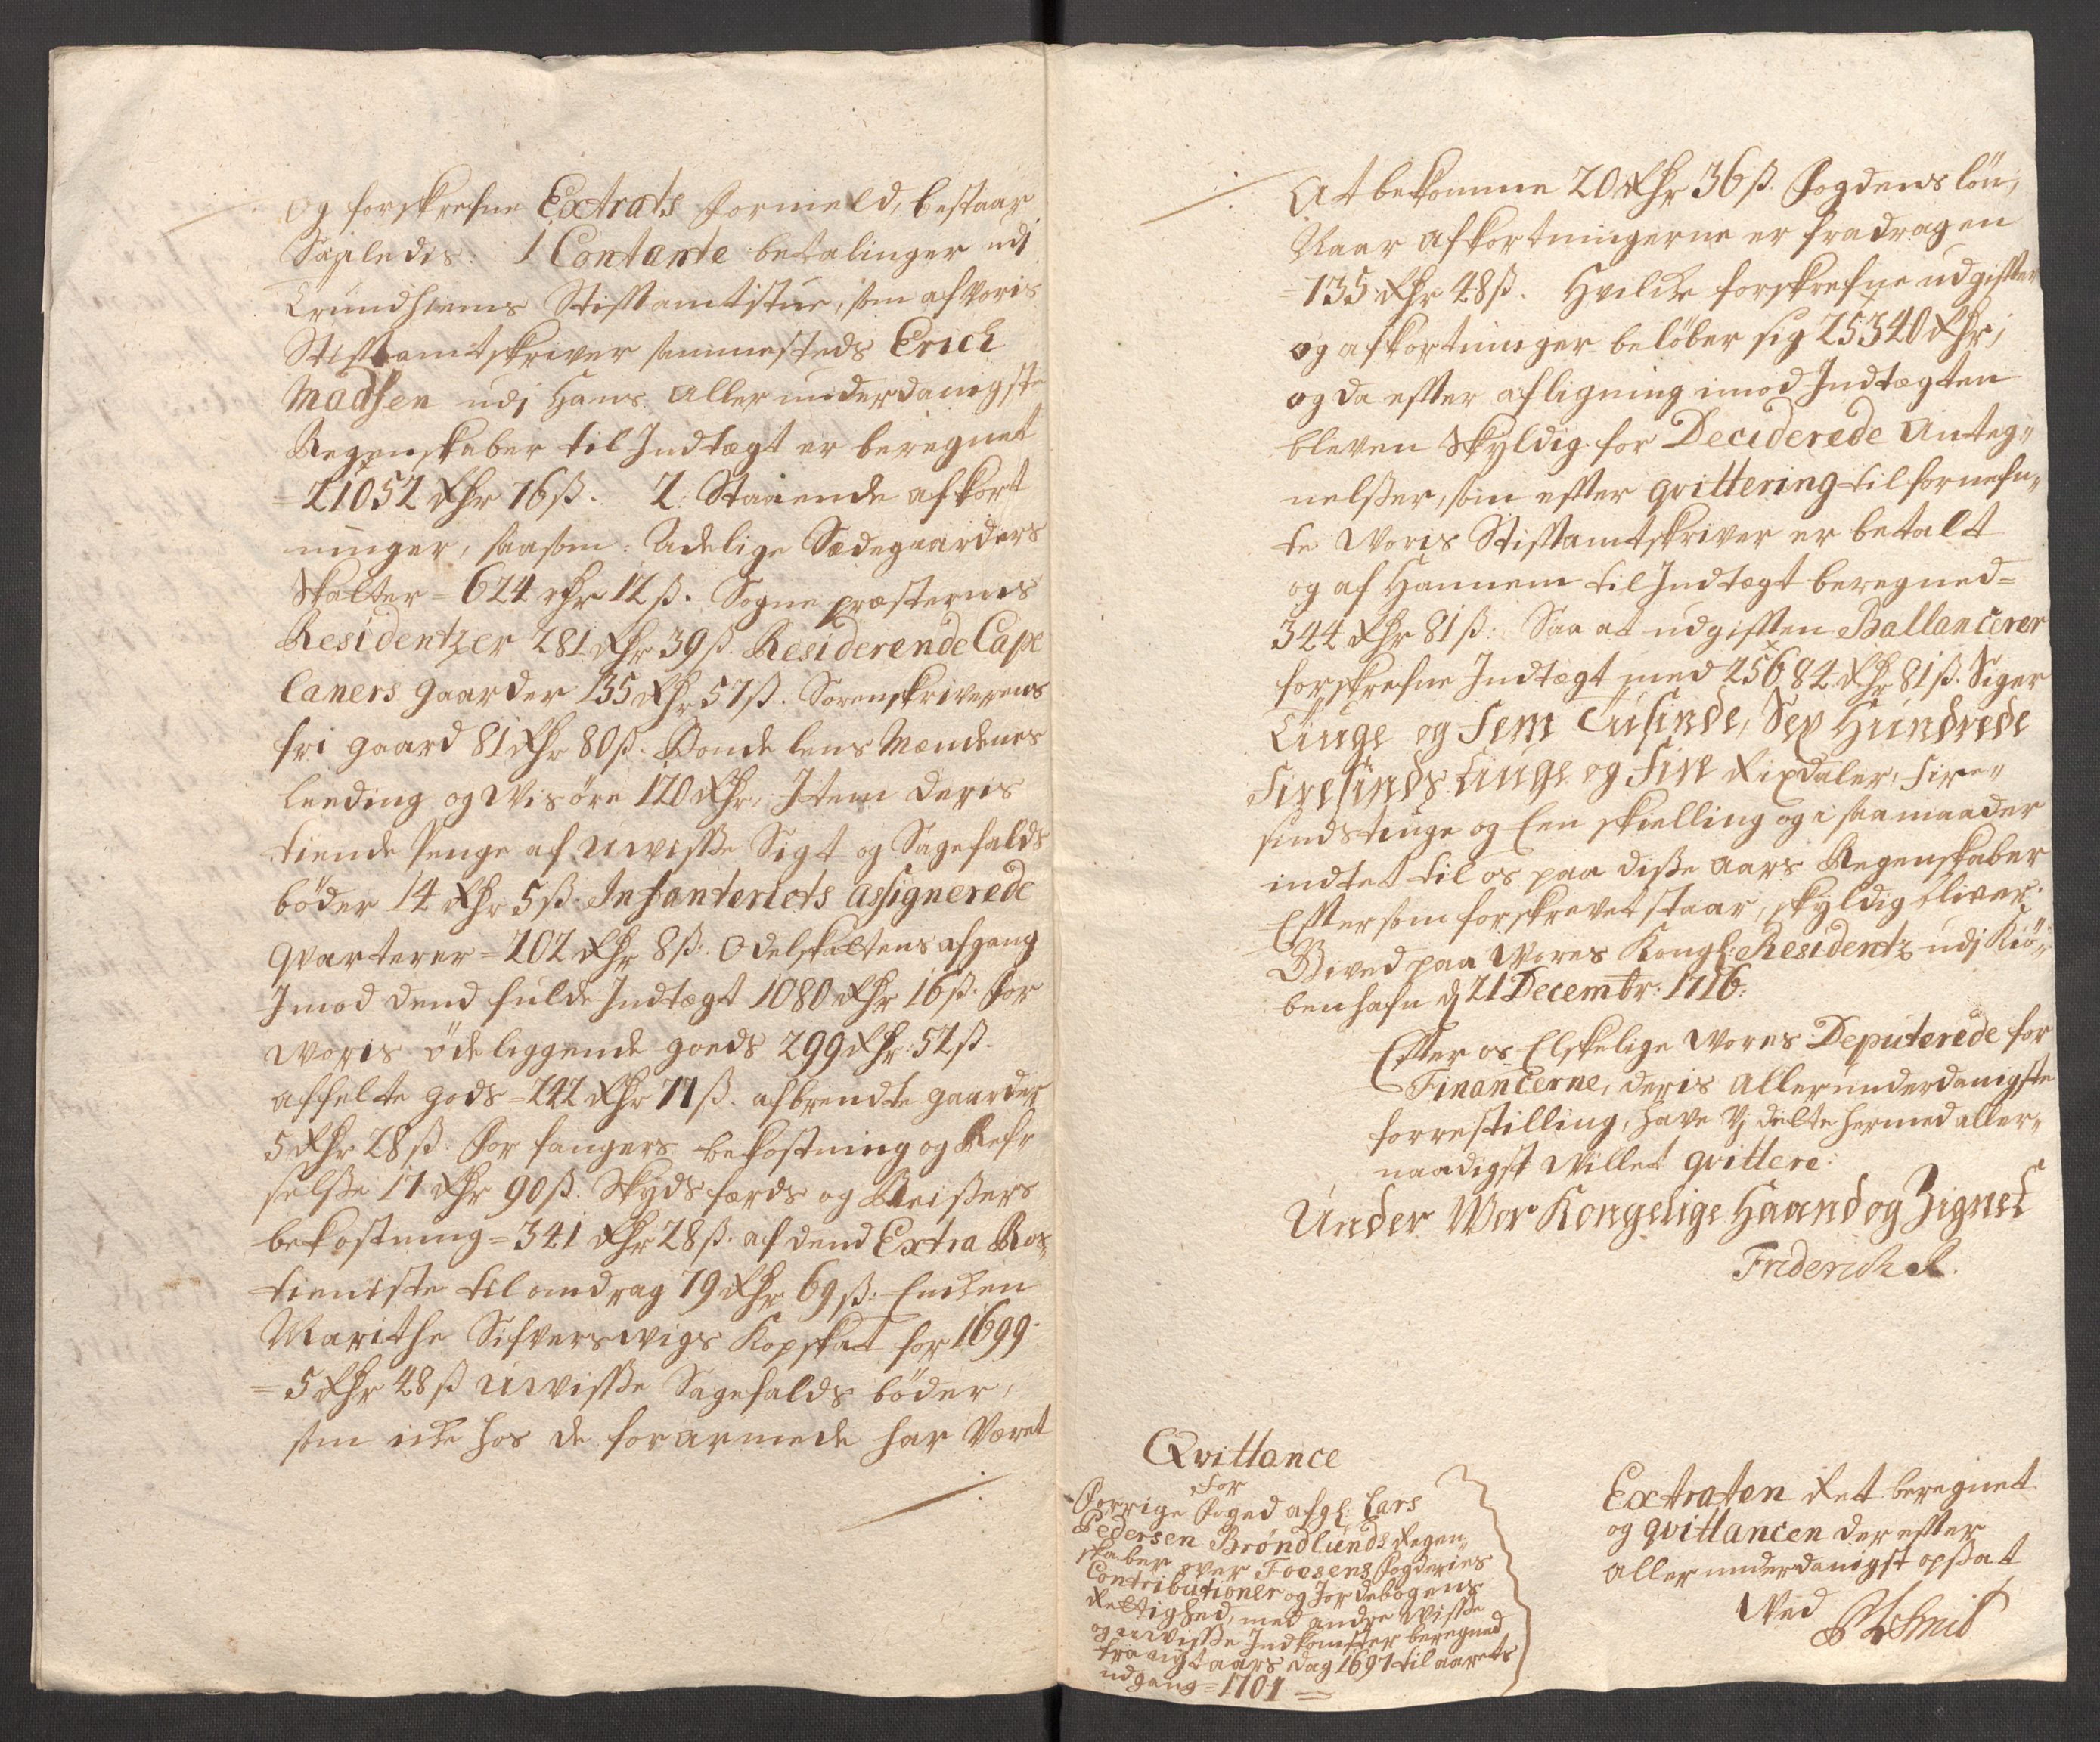 og forskrefne Extrats Formeld, bestaar
Saaledis: 1 Contante betalinger udj
Trundhiems Stiftamtstue, som af Voris
Stiftamtskriver sammesteds Erich
Madsen udj Hans Allerunderdanigste
Regenskaber til Indtægt er beregnet
= 21052 Rdr 16 ß. 2: Staaende afkort
ninger, saasom: Adelige Sædegaarders
Skatter = 624 rdr 12 ß. Sogne præsternes
Residentzer 281 Rdr 39 ß. Residerende Cape
laners gaarder 135 Rdr 57 ß. Sorenskriverens
fri gaard 81 Rdr 80 ß. Bonde lens Mændenes
leeding og Wisöre 120 Rdr, Item deris
tiende Penge af Uwisse Sigt og Sagefalds
böder 14 Rdr 5 ß. Infanteriets assignerede
qvarterer = 202 Rdr 8 ß. Odelskattens afgang
Imod dend fulde Indtægt 1080 Rdr 16 ß. For
Woris ödeliggende goeds 299 Rdr: 52 ß.
affelte gods = 242 Rdr 71 ß. afbrendte gaarder
5 Rdr 28 ß. For fangers bekostning og Refr
selsse 17 Rdr 90 ß. Skyds færds og Reissers
bekostning = 341 Rdr 28 ß. af dend Extra Ros
tieniste til andrag 79 Rdr 69 ß: Encken
Marithe Sifverswigs Kopskat for 1699.
= 5 Rdr 48 ß Uwisse Sagefalds böder,
som icke hos de forarmede har Været
At bekomme 20 Rdr 36 ß. Fogdens lön,
Naar afkortningerne er fradragen
= 135 Rdr 48 ß. Hvilcke forskrefne udgifter
og afkortninger belöber sig 25340 Rdr,
og da efter afligning imod Indtægten
bleven Skyldig for Deciderede Anteg„
nelsser, som efter qvittering til fornefn„
te Woris Stiftamtskriver er betalt
og af Hannem til Indtægt beregned =
344 Rdr 81 ß: Saa at udgiften Ballancerer
forskrefne Indtægt med 25684 Rdr 81 ß. Siger
Tiuge og Fem Tusinde, Sex Hundrede
Firesinds Tiuge og Fire Rixdaler, Fire„
sinds tiuge og Een skielling og i saamaader
indtet til os paa disse Aars Regenskaber
Eftersom forskrevet staar, skyldig bliver.
Gived paa Wores Kongl: Residentz udj Kiö„
benhafn dj 21 Decembr: 1716:
Efter os Elskelige Wores Deputerede for
Financerne, deris Allerunderdanigste
forrestilling, have Vj dette hermed aller„
naadigst Villet qvittere:
Under Wor Kongelige Haand og Zignet
Friderich R.
Qvittance
for
Forrige Foged afgl: Lars
Pedersen Bröndlunds Regen„
skaber over Foesens Fogderies
Contributioner og Jordebogens
Rettighed, med andre Wisse
og uwisse Indkomster beregned
fra nytaars dag 1697 til aarets
udgang = 1701 =
Extraten Ret beregnet
og qvittancen derefter
allerunderdanigst opssat
Ved